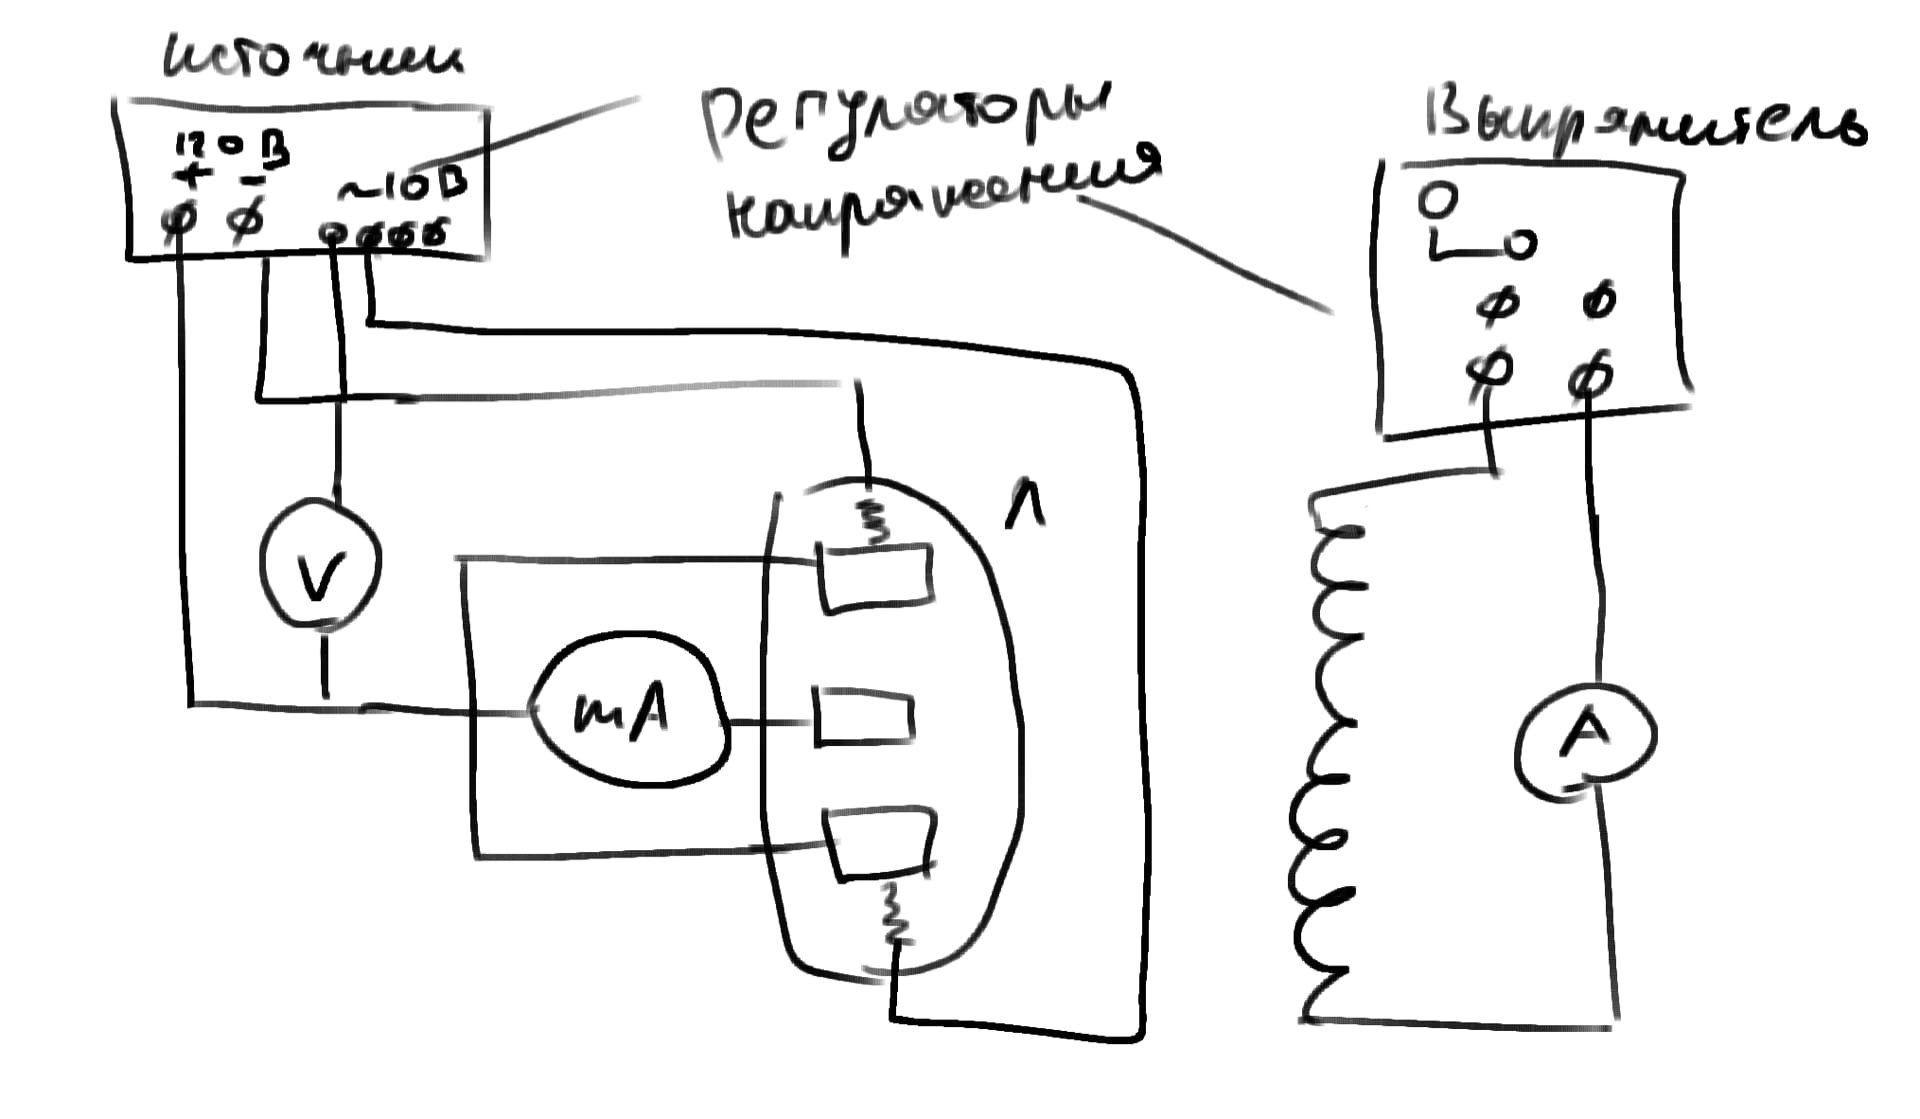 источник
120 В
+ -
~10 В
Регуляторы
напряжения
Выпрямитель
V
mA
Л
A